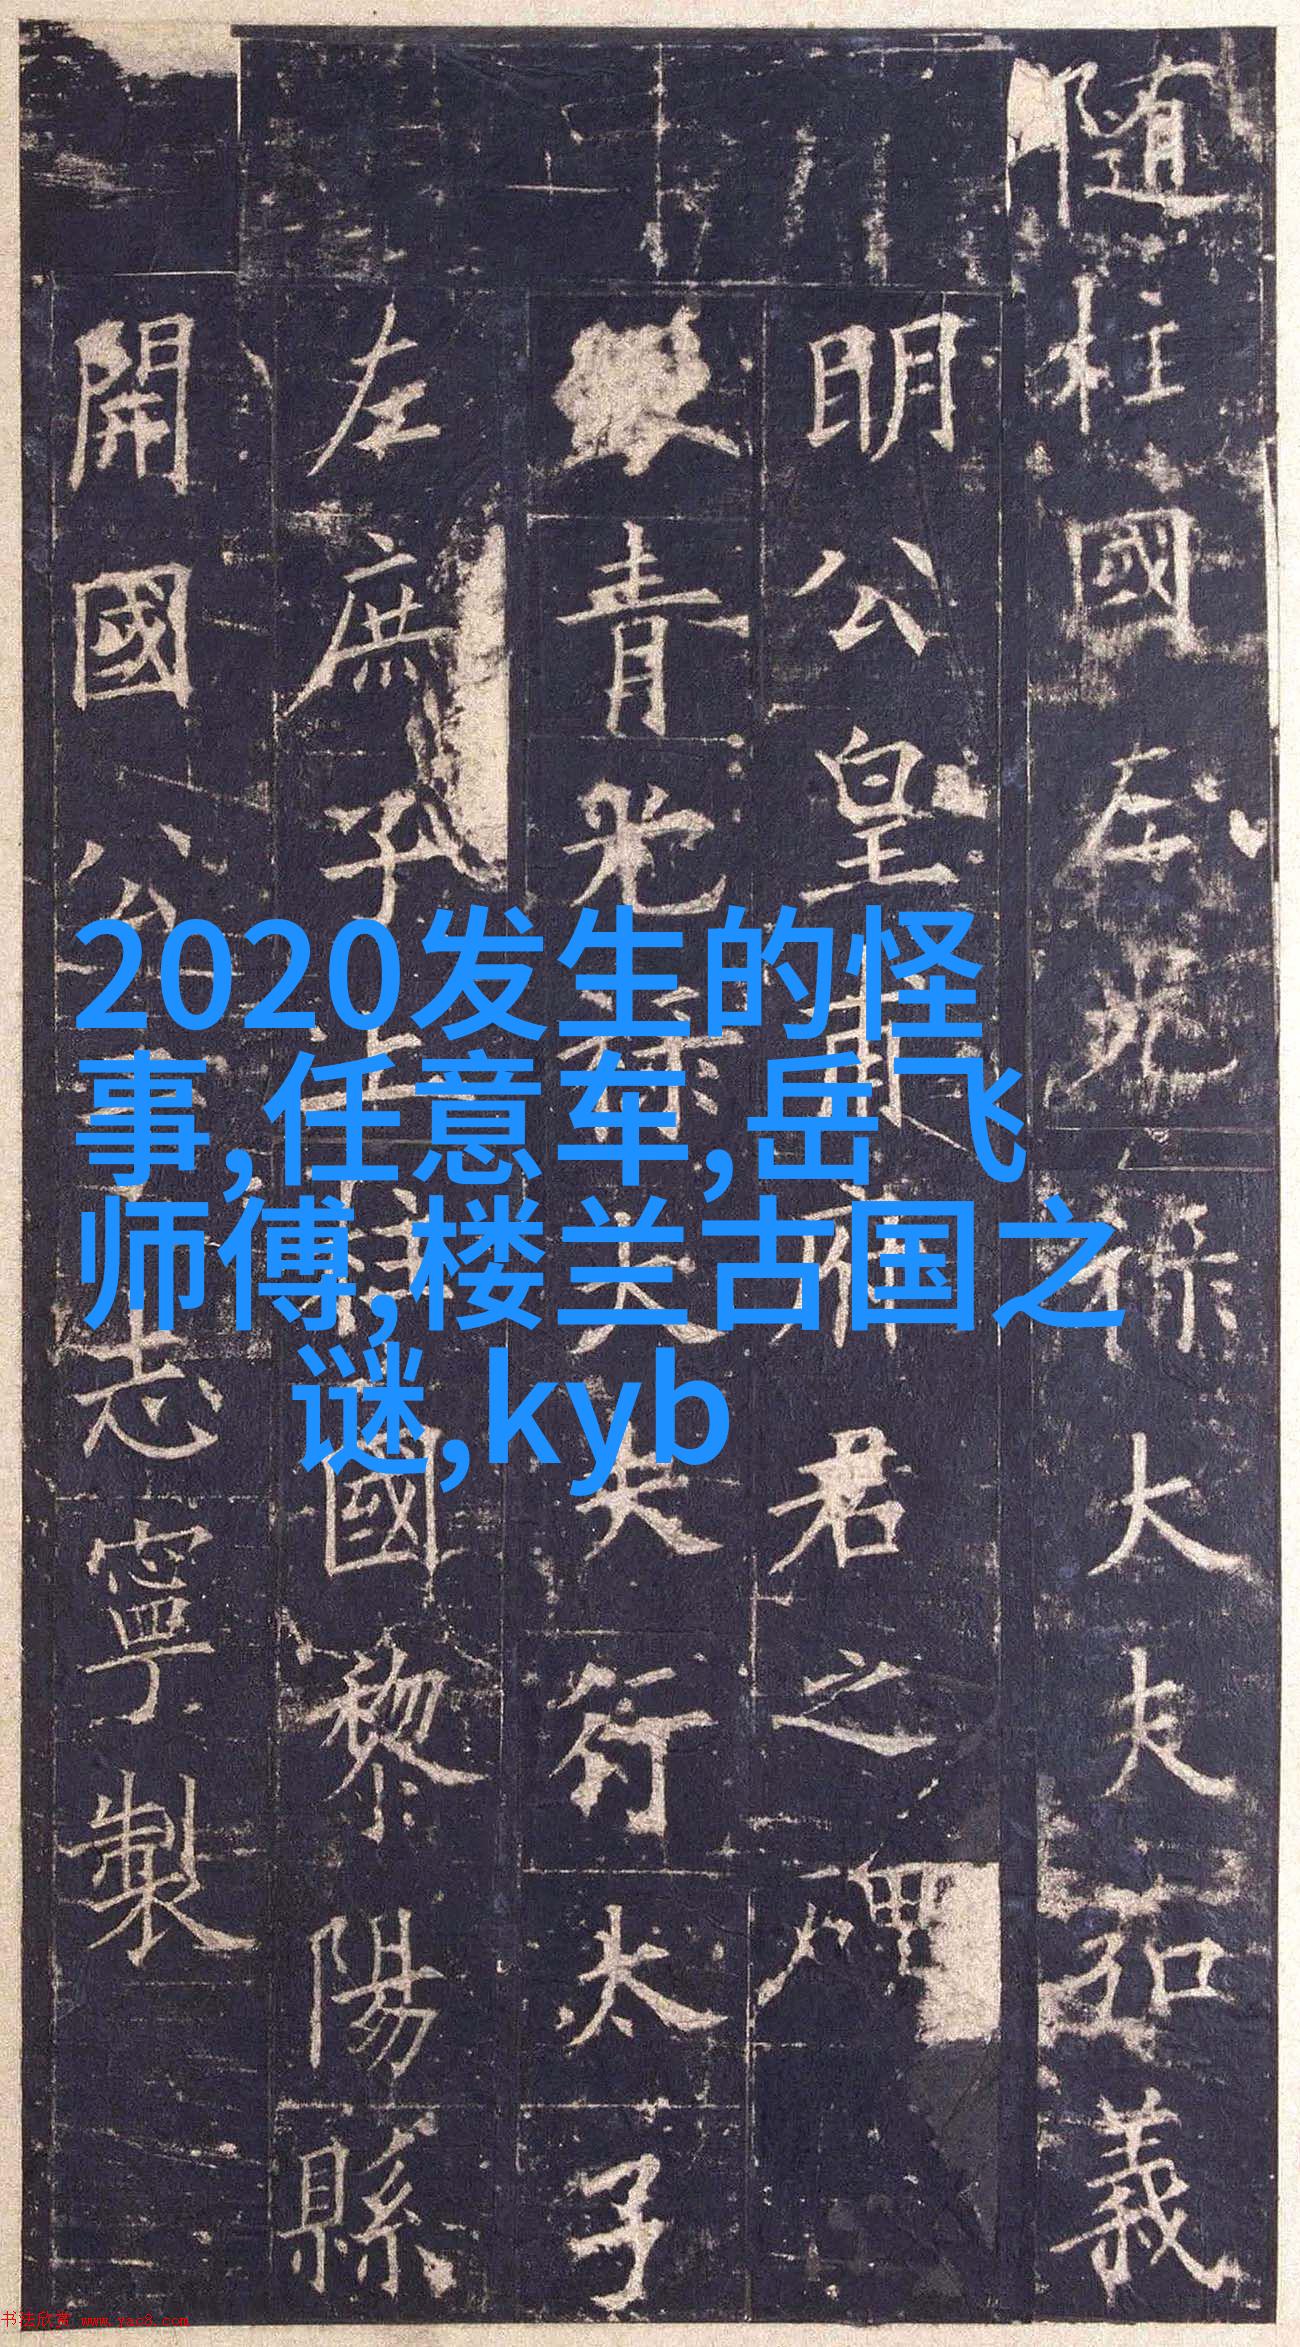 随柱國左光祿大夫弘義
明公皇甫府君之碑
銀青光祿大夫行太子
左庶子上柱國黎陽縣
開國公于志寧製
2020发生的怪
事,任意车,岳飞
师傅,楼兰古国之
谜,kyb
书法欣赏 www.yac8.com